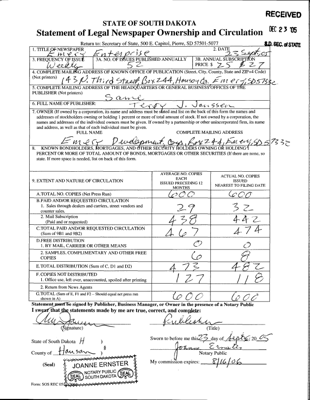 RECEIVED
DEC 23 '05
S.D. SEC. OF STATE
STATE OF SOUTH DAKOTA
Statement of Legal Newspaper Ownership and Circulation
Return to: Secretary of State, 500 E. Capitol, Pierre, SD 57501-5077
1. TITLE OF NEWSPAPER
Emery Enterprise
2. DATE
23 Sept 05
3. FREQUENCY OF ISSUE
Weekly
3A. NO. OF ISSUES PUBLISHED ANNUALLY
52
3B. ANNUAL SUBSCRIPTION
PRICE $ 25 & 27
4. COMPLETE MAILING ADDRESS OF KNOWN OFFICE OF PUBLICATION (Street, City, County, State and ZIP+4 Code)
(Not printers) 143 N. Third Street Box 244, Hanson Co. Emery, SD 57332
5. COMPLETE MAILING ADDRESS OF THE HEADQUARTERS OR GENERAL BUSINESS OFFICES OF THE
PUBLISHER (Not printer)
Same
6. FULL NAME OF PUBLISHER:
Terry J. Janssen
7. OWNER (If owned by a corporation, its name and address must be stated and also on the back of this form the names and
addresses of stockholders owning or holding 1 percent or more of total amount of stock. If not owned by a corporation, the
names and addresses of the individual owners must be given. If owned by a partnership or other unincorporated firm, its name
and address, as well as that of each individual must be given.
FULL NAME COMPLETE MAILING ADDRESS
Emery Development Corp. Box 244, Emery, SD 57332
8. KNOWN BONDHOLDERS, MORTGAGES, AND OTHER SECURITY HOLDERS OWNING OR HOLDING 1
PERCENT OR MORE TOTAL AMOUNT OF BONDS, MORTGAGES OR OTHER SECURITIES (If there are none, so
state. If more space is needed, list on back of this form.
9. EXTENT AND NATURE OF CIRCULATION
AVERAGE NO. COPIES
EACH
ISSUED PRECEDING 12
MONTHS
ACTUAL NO. COPIES
ISSUED
NEAREST TO FILING DATE
A. TOTAL NO. COPIES (Net Press Run) 600 600
B. PAID AND/OR REQUESTED CIRCULATION
1. Sales through dealers and carriers, street vendors and
counter sales. 29 32
2. Mail Subscription
(Paid and or requested) 438 442
C. TOTAL PAID AND/OR REQUESTED CIRCULATION
(Sum of 9B1 and 9B2) 467 474
D. FREE DISTRIBUTION
1. BY MAIL, CARRIER OR OTHER MEANS 0 0
2. SAMPLES, COMPLIMENTARY AND OTHER FREE
COPIES 6 8
E. TOTAL DISTRIBUTION (Sum of C, D1 and D2) 473 482
F. COPIES NOT DISTRIBUTED
1. Office use, left over, unaccounted, spoiled after printing 127 118
2. Return from News Agents
G. TOTAL (Sum of E, F1 and F2 - Should equal net press run
shown in A) 600 600
Statement must be signed by Publisher, Business Manager, or Owner in the presence of a Notary Public
I swear that the statements made by me are true, correct, and complete:
Publisher
(Signature) (Title)
State of South Dakota
County of Hanson
Sworn to before me this 23 day of Sept 20 05
Joanne Ernster
Notary Public
(Seal)
My commission expires: 8/16/06
JOANNE ERNSTER
NOTARY PUBLIC
SOUTH DAKOTA
SEAL
SEAL